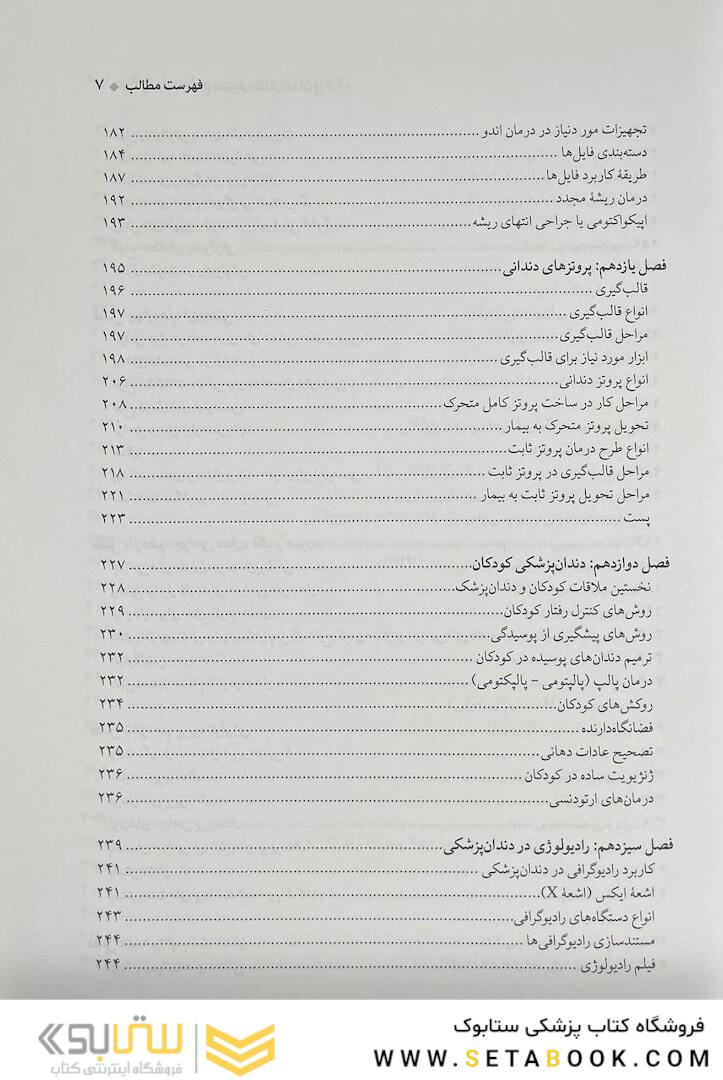 فهرست مطالب ◆ ۷
تجهیزات مور دنیاز در درمان اندو ........ ۱۸۲
دسته‌بندی فایل‌ها ........ ۱۸۴
طریقهٔ کاربرد فایل‌ها ........ ۱۸۷
درمان ریشهٔ مجدد ........ ۱۹۲
اپیکواکتومی یا جراحی انتهای ریشه ........ ۱۹۳
فصل یازدهم: پروتزهای دندانی ........ ۱۹۵
قالب‌گیری ........ ۱۹۶
انواع قالب‌گیری ........ ۱۹۷
مراحل قالب‌گیری ........ ۱۹۷
ابزار مورد نیاز برای قالب‌گیری ........ ۱۹۸
انواع پروتز دندانی ........ ۲۰۶
مراحل کار در ساخت پروتز کامل متحرک ........ ۲۰۸
تحویل پروتز متحرک به بیمار ........ ۲۱۰
انواع طرح درمان پروتز ثابت ........ ۲۱۳
مراحل قالب‌گیری در پروتز ثابت ........ ۲۱۸
مراحل تحویل پروتز ثابت به بیمار ........ ۲۲۱
پست ........ ۲۲۳
فصل دوازدهم: دندان‌پزشکی کودکان ........ ۲۲۷
نخستین ملاقات کودکان و دندان‌پزشک ........ ۲۲۸
روش‌های کنترل رفتار کودکان ........ ۲۲۹
روش‌های پیشگیری از پوسیدگی ........ ۲۳۰
ترمیم دندان‌های پوسیده در کودکان ........ ۲۳۲
درمان پالپ (پالپتومی - پالپکتومی) ........ ۲۳۲
روکش‌های کودکان ........ ۲۳۴
فضانگاه‌دارنده ........ ۲۳۵
تصحیح عادات دهانی ........ ۲۳۵
ژنژیویت ساده در کودکان ........ ۲۳۶
درمان‌های ارتودنسی ........ ۲۳۶
فصل سیزدهم: رادیولوژی در دندان‌پزشکی ........ ۲۳۹
کاربرد رادیوگرافی در دندان‌پزشکی ........ ۲۴۱
اشعهٔ ایکس (اشعهٔ X) ........ ۲۴۱
انواع دستگاه‌های رادیوگرافی ........ ۲۴۳
مستندسازی رادیوگرافی‌ها ........ ۲۴۴
فیلم رادیولوژی ........ ۲۴۴
فروشگاه کتاب پزشکی ستابوک
WWW.SETABOOK.COM
ستابوک
فروشگاه اینترنتی کتاب